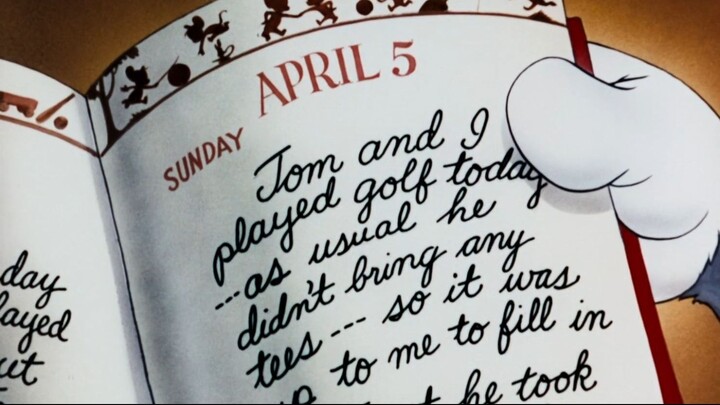 day
layed
ut
APRIL 5
SUNDAY
Tom and I
played golf today
---as usual he
didn't bring any
tees --- so it was
up to me to fill in
he took